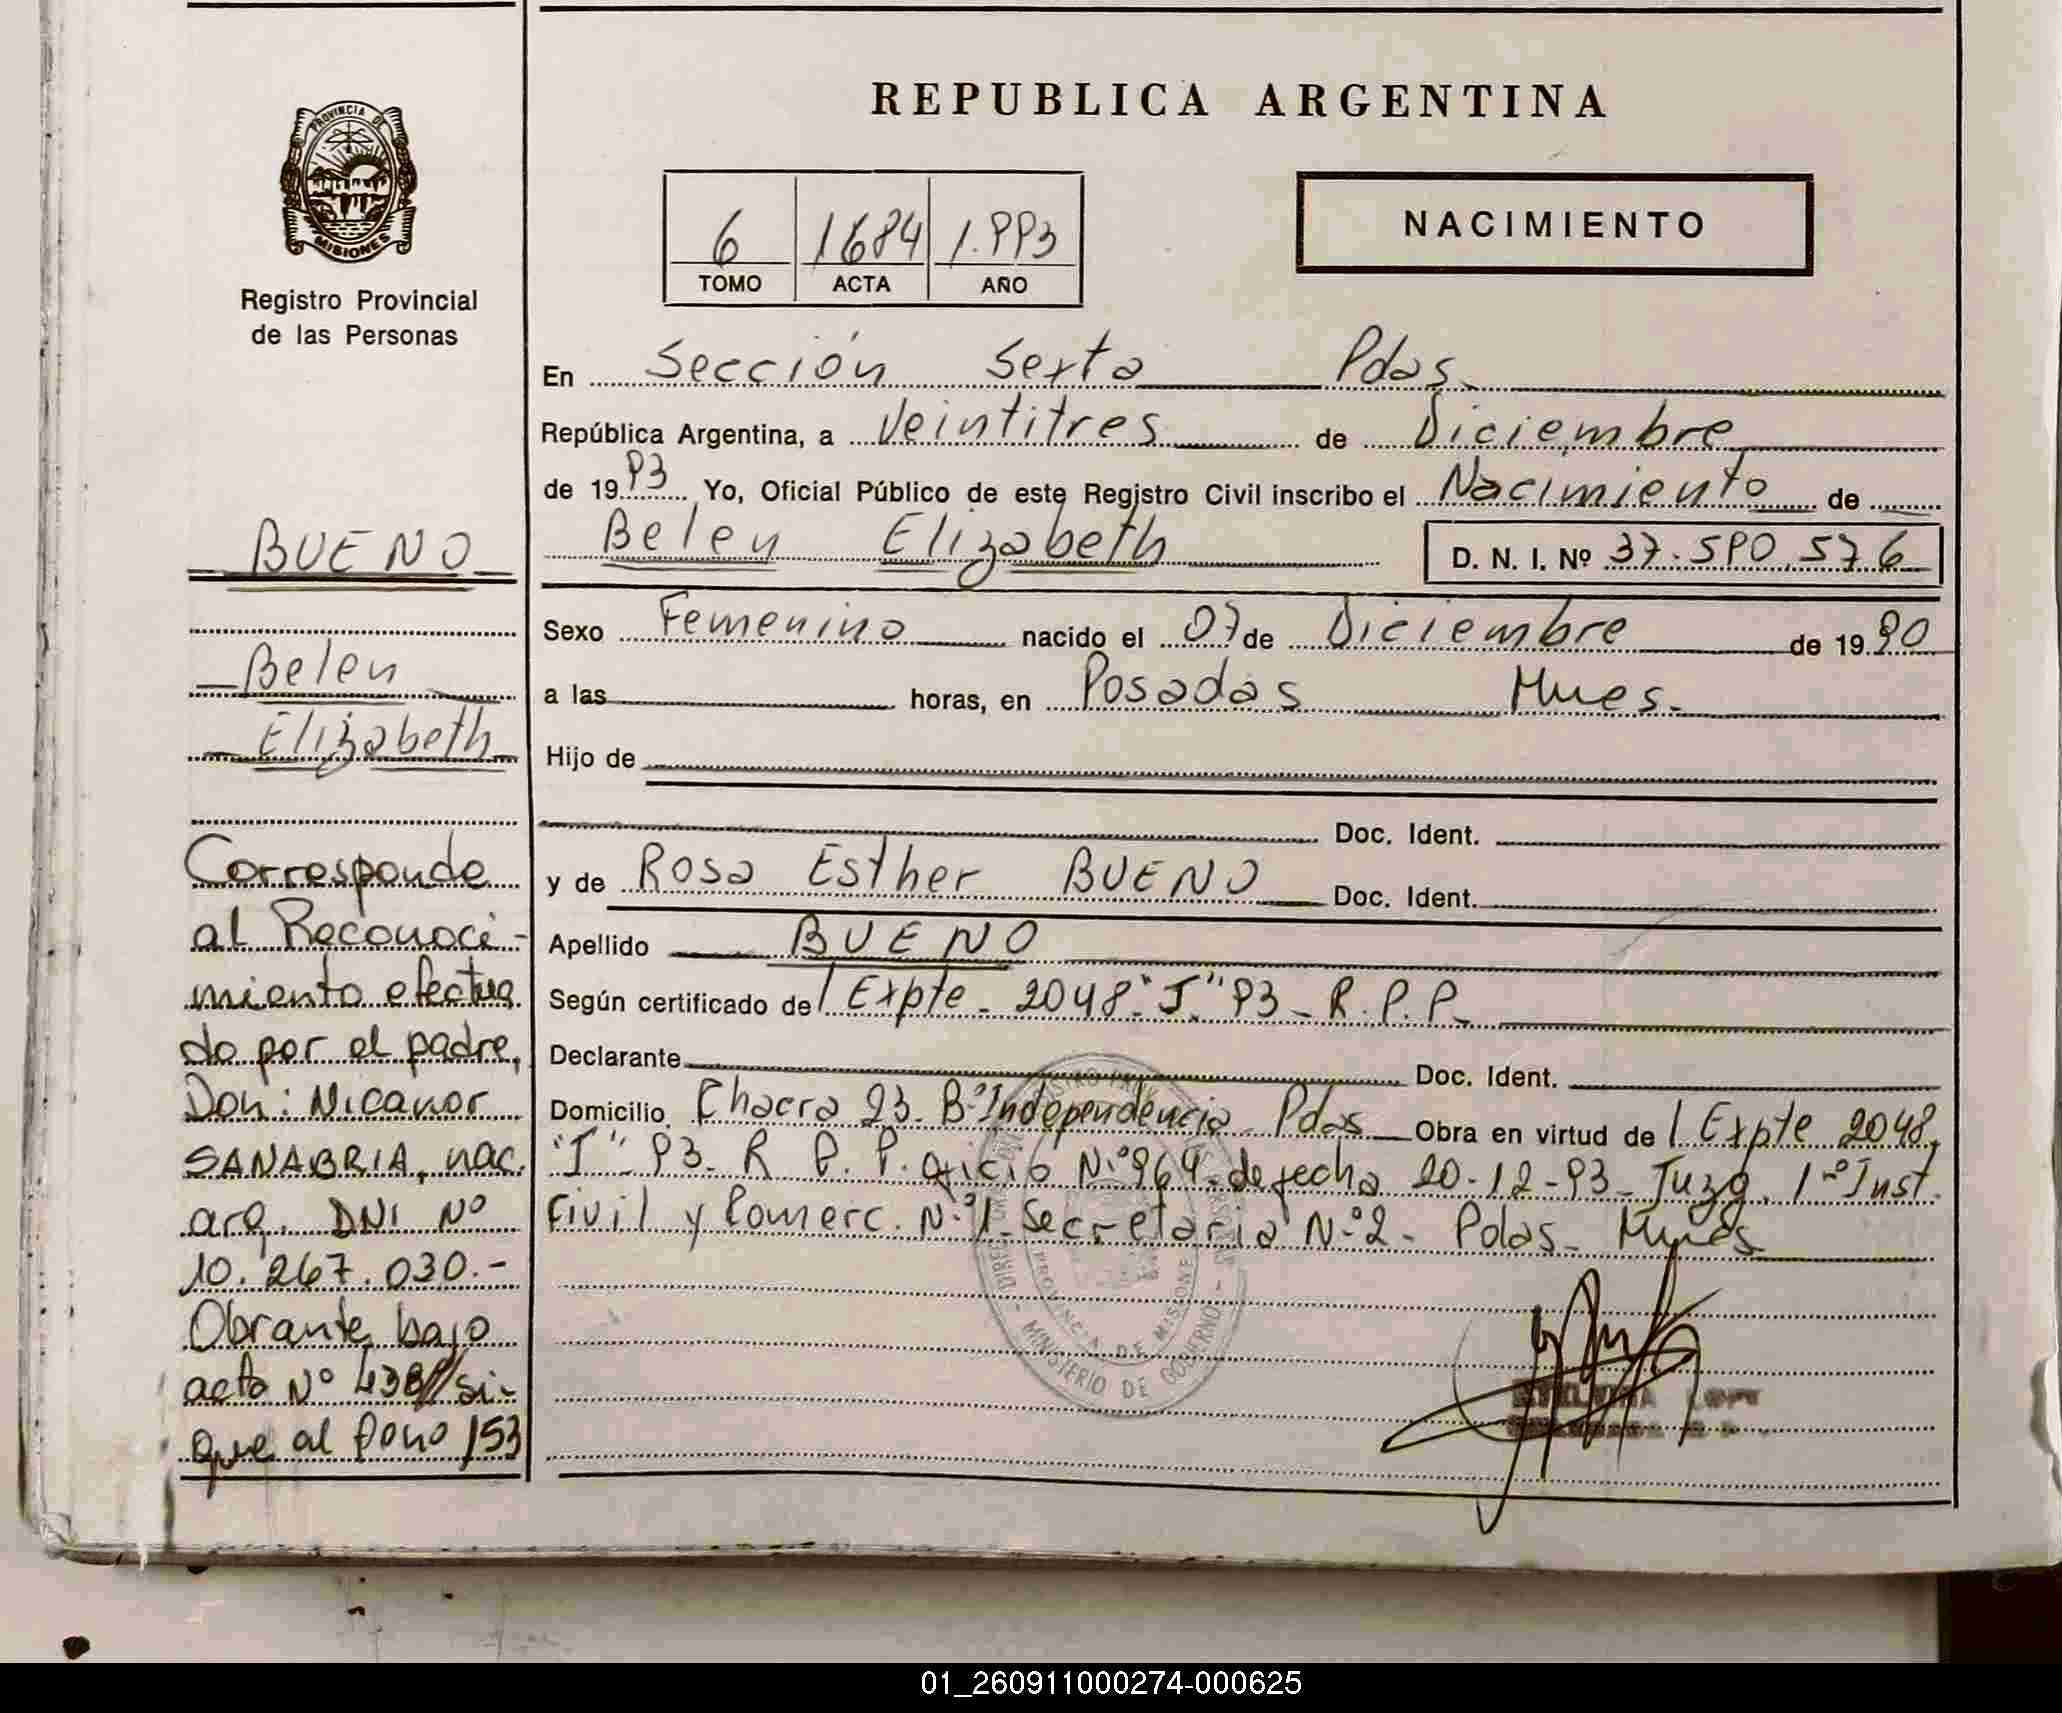 REPUBLICA ARGENTINA
PROVINCIA DE
MISIONES
Registro Provincial
de las Personas
6 1684 1.993
TOMO ACTA AÑO
NACIMIENTO
En Sección Sexta Pdas.
República Argentina, a Veintitres de Diciembre
de 1993 Yo, Oficial Público de este Registro Civil inscribo el Nacimiento de
Belen Elizabeth D. N. I. Nº 37.590.576
Sexo Femenino nacido el 07 de Diciembre de 1990
a las horas, en Posadas Mnes.
Hijo de
Doc. Ident.
y de Rosa Esther BUENO Doc. Ident.
Apellido BUENO
Según certificado de Expte - 2048-"J" 93 - R. P. P.
Declarante Doc. Ident.
Domicilio Chacra 23. Bº Independencia Pdas Obra en virtud de Expte 2048,
"J" 93. R. P. P. oficio N.º 964 de fecha 20-12-93 - Juzg. 1-º Inst.
Civil y Comerc. N.º 1 - Secretaria N-º 2 - Pdas - Mnes
MINISTERIO DE GOBIERNO
PROVINCIA DE MISIONES
BUENO
Belen
Elizabeth
Corresponde
al Reconoci-
miento efectua
do por el padre,
Don: Nicanor
SANABRIA, nac.
arg. DNI Nº
10.267.030.-
Obrante bajo
acta Nº 438// si-
gue al fono 153
01_260911000274-000625